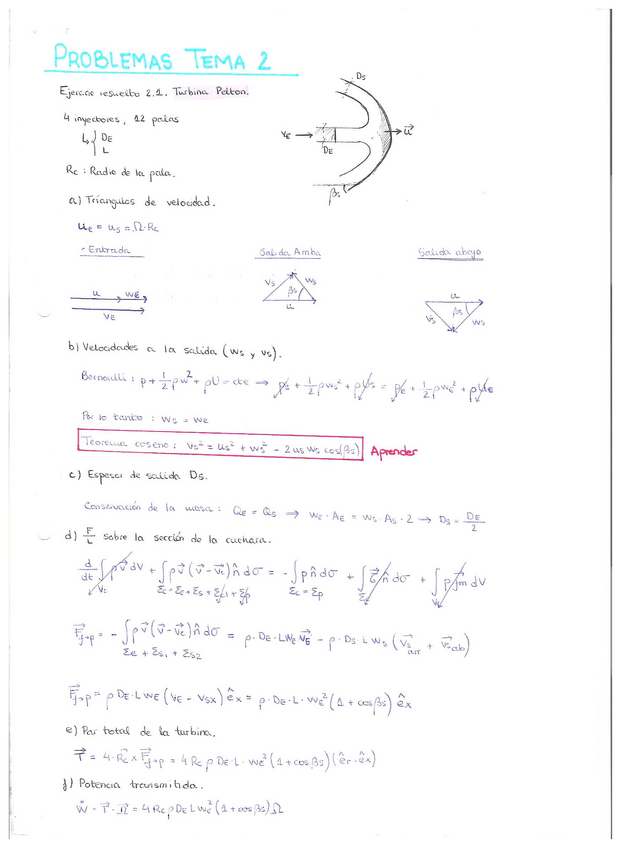 PROBLEMAS TEMA 2
Ejercicio resuelto 2.1. Turbina Pelton.
4 inyectores, 12 palas
↳ { DE
L
Rc : Radio de la pala.
Ds
VE →
DE
→ u⃗
βs
a) Triángulos de velocidad.
uE = us = Ω·Rc
- Entrada
Salida Arriba
Salida abajo
u wE
vE
vs βs ws
u
u
vs βs ws
b) Velocidades a la salida (ws y vs).
Bernoulli : p + 1/2 ρw² + ρU = cte ⟹ ps + 1/2 ρws² + ρUs = pe + 1/2 ρwe² + ρUe
Por lo tanto : ws = we
Teorema coseno : vs² = us² + ws² - 2us ws cos(βs)
Aprender
c) Espesor de salida Ds.
Conservación de la masa : QE = QS ⟹ wE · AE = ws · As · 2 → Ds = DE/2
d) F/L sobre la sección de la cuchara.
d/dt ∫ ρ v⃗ dV + ∫ ρ v⃗ (v⃗ - v⃗c) n̂ dσ = - ∫ p n̂ dσ + ∫ τ⃗ n̂ dσ + ∫ ρ f⃗m dV
Vc Σc = Σe + Σs + Σl + Σp Σc = Σp Σc Vc
F⃗j→p = - ∫ ρ v⃗ (v⃗ - v⃗c) n̂ dσ = ρ · DE · L wE v⃗E - ρ · Ds · L ws (v⃗s arr + v⃗s ab)
Σe + Σs1 + Σs2
F⃗j→p = ρ DE · L wE (vE - vsx) êx = ρ · DE · L · wE² (1 + cos βs) êx
e) Par total de la turbina.
T⃗ = 4 · R⃗c × F⃗j→p = 4 Rc ρ DE · L · we² (1 + cos βs) (êr · êx)
f) Potencia transmitida.
Ẇ - T⃗ · Ω⃗ = 4 Rc ρ DE L we² (1 + cos βs) Ω